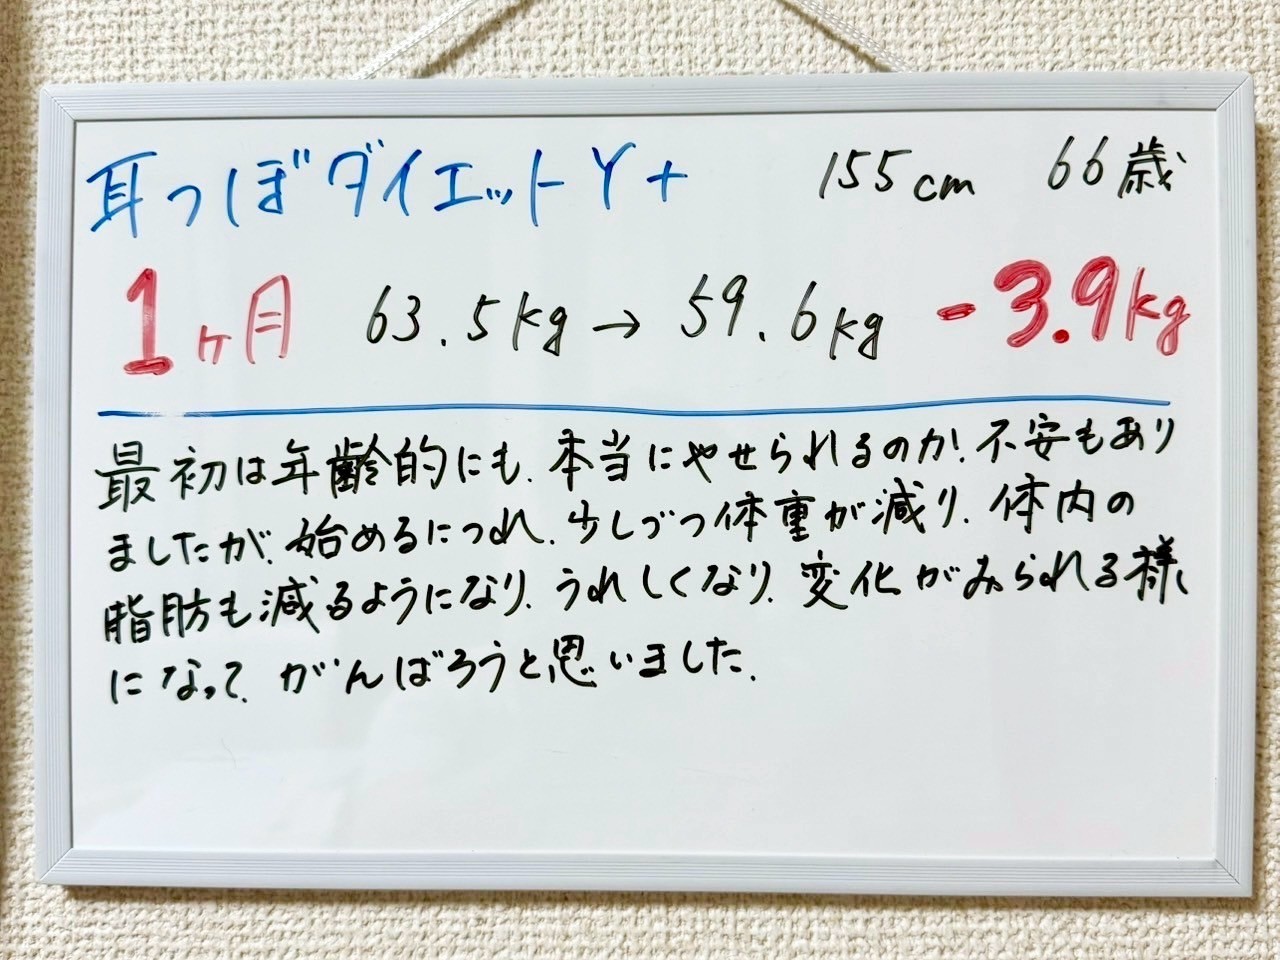 耳つぼダイエットY+ 155cm 66歳
1ヶ月 63.5kg→59.6kg -3.9kg
最初は年齢的にも、本当にやせられるのか!不安もあり
ましたが、始めるにつれ、少しづつ体重が減り、体内の
脂肪も減るようになり、うれしくなり、変化がみられる様
になって、がんばろうと思いました。